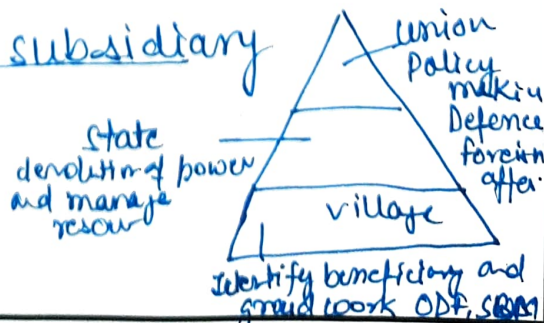 subsidiary
union
Policy
makin
Defence
foreign
affai.
state
devolution of power
and manage
resour
village
Identify beneficiary and
ground work ODF, SBM